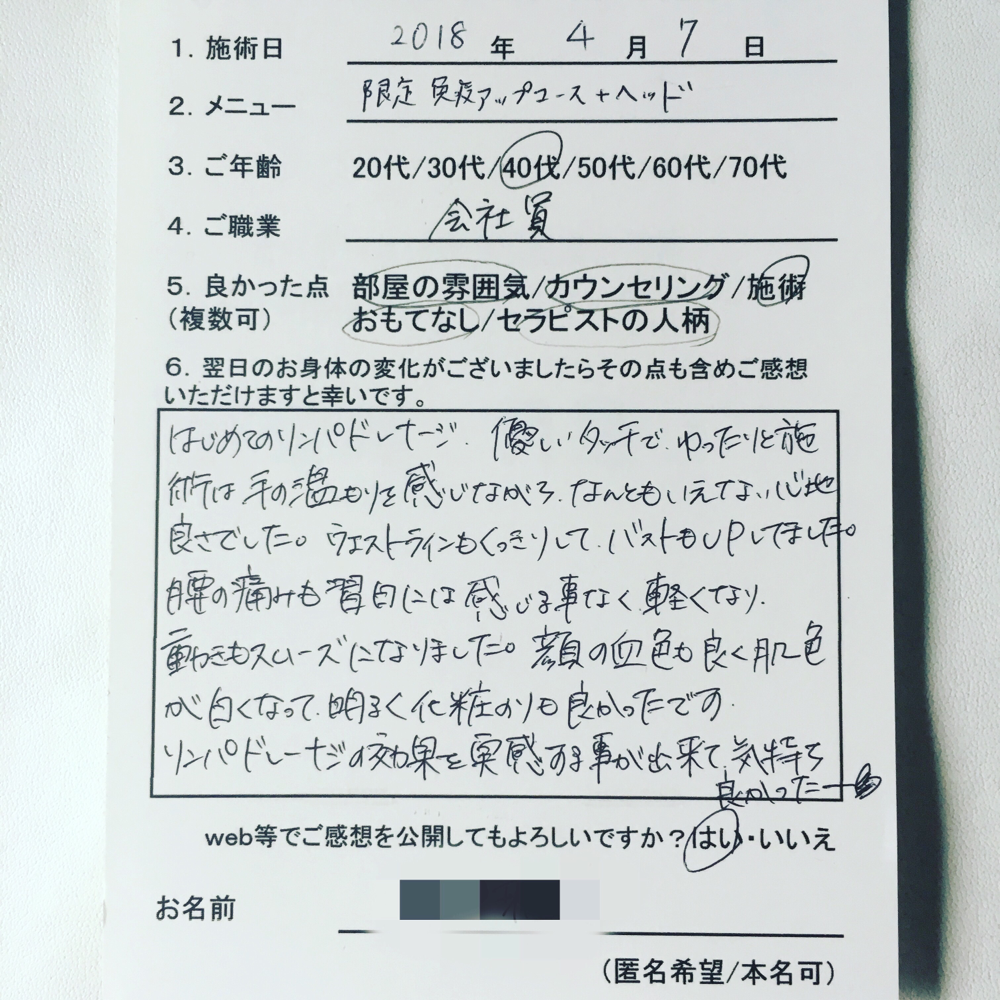 1. 施術日 2018 年 4 月 7 日
2. メニュー 限定 免疫アップコース+ヘッド
3. ご年齢 20代/30代/40代/50代/60代/70代
4. ご職業 会社員
5. 良かった点 部屋の雰囲気/カウンセリング/施術
(複数可) おもてなし/セラピストの人柄
6. 翌日のお身体の変化がございましたらその点も含めご感想
いただけますと幸いです。
はじめてのリンパドレナージ. 優しいタッチで、ゆったりと施
術は手の温もりを感じながら、なんともいえない心地
良さでした。ウエストラインもくっきりして、バストもUPしてました。
腰の痛みも翌日には感じる事なく、軽くなり、
動きもスムーズになりました。顔の血色も良く肌色
が白くなって、明るく化粧のりも良かったです.
リンパドレーナジの効果を実感する事が出来て、気持ち
良かったー
web等でご感想を公開してもよろしいですか?はい・いいえ
お名前
(匿名希望/本名可)